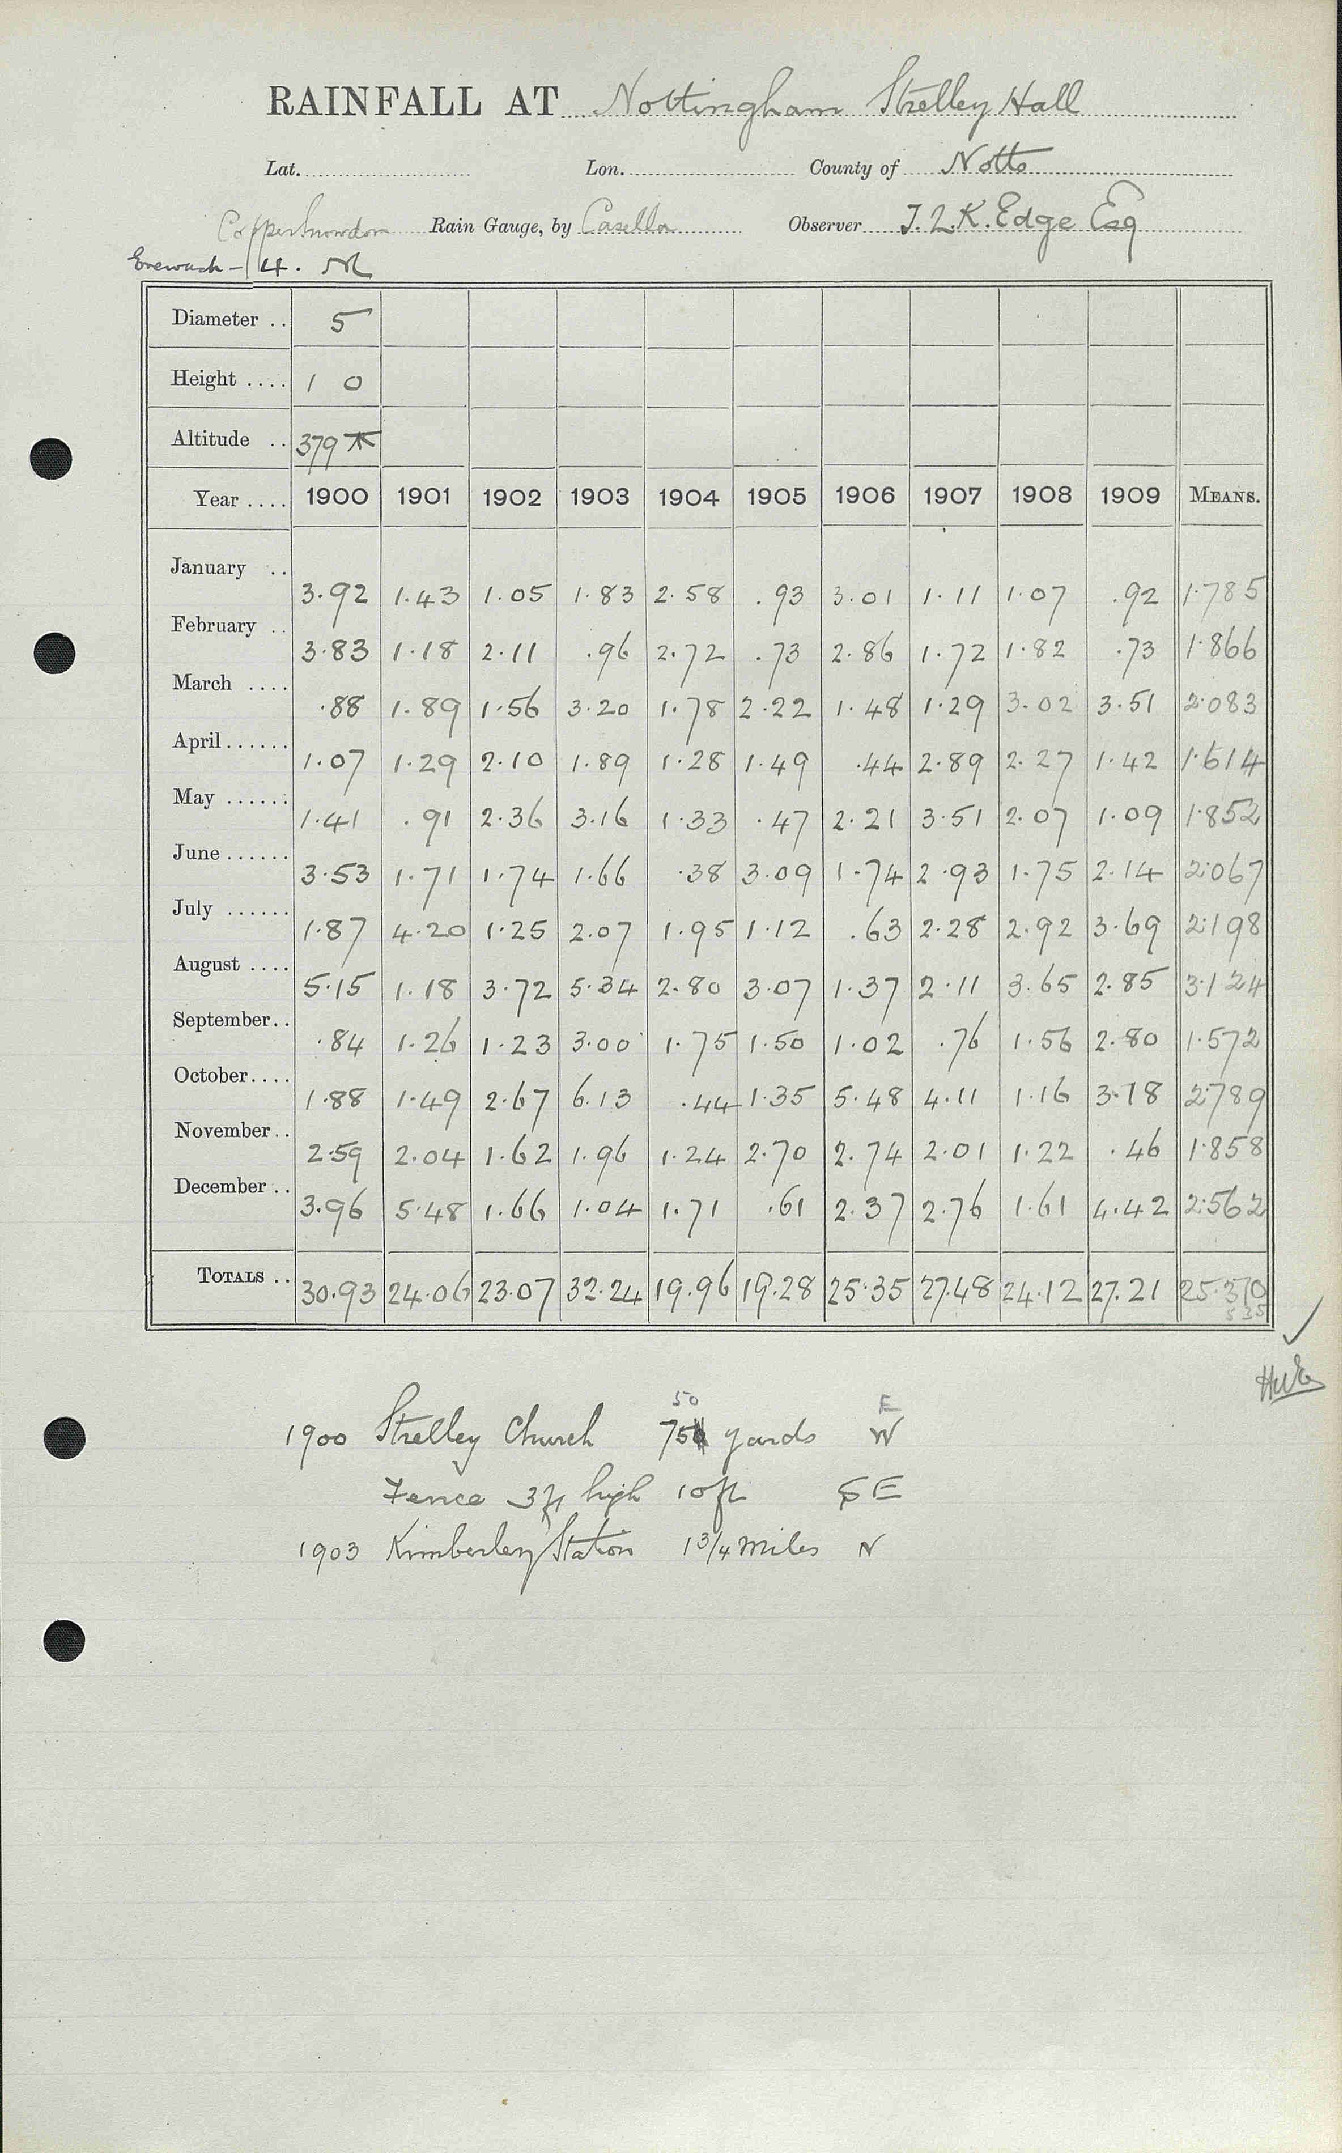 RAINFALL AT Nottingham Strelley Hall
Lat. Lon. County of Notts
Copper Snowdon Rain Gauge, by Casella Observer J. L. K. Edge Esq
Erewash - 4. M
Diameter .. 5
Height .... 1 0
Altitude .. 379
Year .... 1900 1901 1902 1903 1904 1905 1906 1907 1908 1909 MEANS.
January .. 3.92 1.43 1.05 1.83 2.58 .93 3.01 1.11 1.07 .92 1.785
February .. 3.83 1.18 2.11 .96 2.72 .73 2.86 1.72 1.82 .73 1.866
March .... .88 1.89 1.56 3.20 1.78 2.22 1.48 1.29 3.02 3.51 2.083
April ...... 1.07 1.29 2.10 1.89 1.28 1.49 .44 2.89 2.27 1.42 1.614
May ...... 1.41 .91 2.36 3.16 1.33 .47 2.21 3.51 2.07 1.09 1.852
June ...... 3.53 1.71 1.74 1.66 .38 3.09 1.74 2.93 1.75 2.14 2.067
July ...... 1.87 4.20 1.25 2.07 1.95 1.12 .63 2.28 2.92 3.69 2.198
August .... 5.15 1.18 3.72 5.34 2.80 3.07 1.37 2.11 3.65 2.85 3.124
September .. .84 1.26 1.23 3.00 1.75 1.50 1.02 .76 1.56 2.80 1.572
October .... 1.88 1.49 2.67 6.13 .44 1.35 5.48 4.11 1.16 3.18 2.789
November .. 2.59 2.04 1.62 1.96 1.24 2.70 2.74 2.01 1.22 .46 1.858
December .. 3.96 5.48 1.66 1.04 1.71 .61 2.37 2.76 1.61 4.42 2.562
TOTALS .. 30.93 24.06 23.07 32.24 19.96 19.28 25.35 27.48 24.12 27.21 25.370
50 E
1900 Strelley Church 75 yards W
Fence 3 ft high 10 ft SE
1903 Kimberley Station 1 3/4 miles N